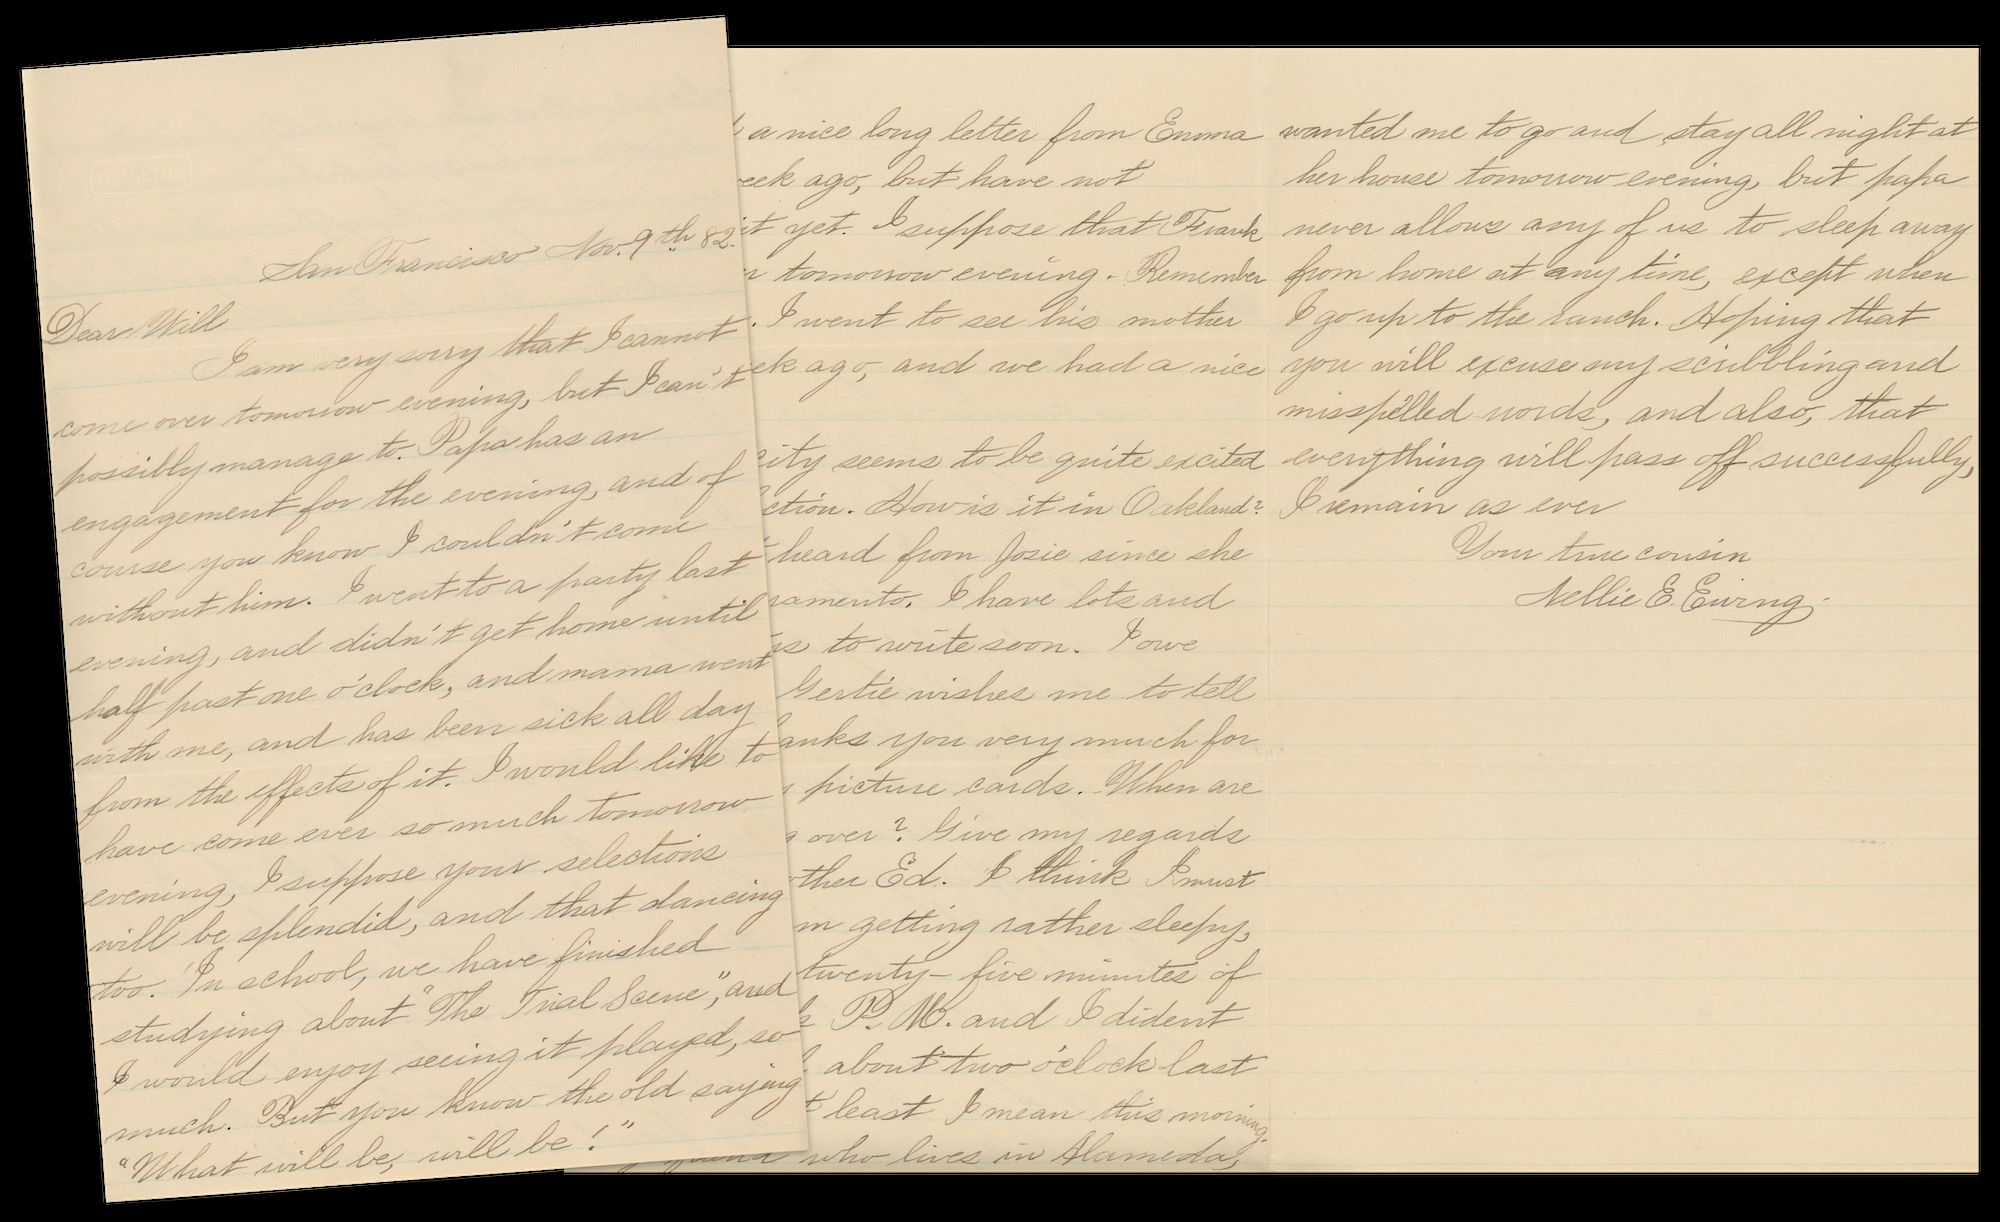 HAMILTON
San Francisco Nov. 9th 82.
Dear Will
I am very sorry that I cannot
come over tomorrow evening, but I can't
possibly manage to. Papa has an
engagement for the evening, and of
course you know I couldn't come
without him. I went to a party last
evening, and didn't get home until
half past one o'clock, and mama went
with me, and has been sick all day
from the effects of it. I would like to
have come ever so much tomorrow
evening, I suppose your selections
will be splendid, and that dancing
too. In school, we have finished
studying about "The Trial Scene", and
I would enjoy seeing it played, so
much. But you know the old saying
"What will be, will be!"
a nice long letter from Emma
eek ago, but have not
it yet. I suppose that Frank
tomorrow evening. Remember
. I went to see his mother
ek ago, and we had a nice
city seems to be quite excited
ction. How is it in Oakland?
heard from Josie since she
ramento. I have lots and
to write soon. I owe
Gertie wishes me to tell
anks you very much for
picture cards. When are
over? Give my regards
ther Ed. I think I must
m getting rather sleepy,
twenty-five minutes of
P.M. and I dident
about two o'clock last
t least I mean this morning.
who lives in Alameda,
wanted me to go and stay all night at
her house tomorrow evening, but papa
never allows any of us to sleep away
from home at any time, except when
I go up to the ranch. Hoping that
you will excuse my scribbling and
misspelled words, and also, that
everything will pass off successfully,
I remain as ever
Your true cousin
Nellie E. Ewing.